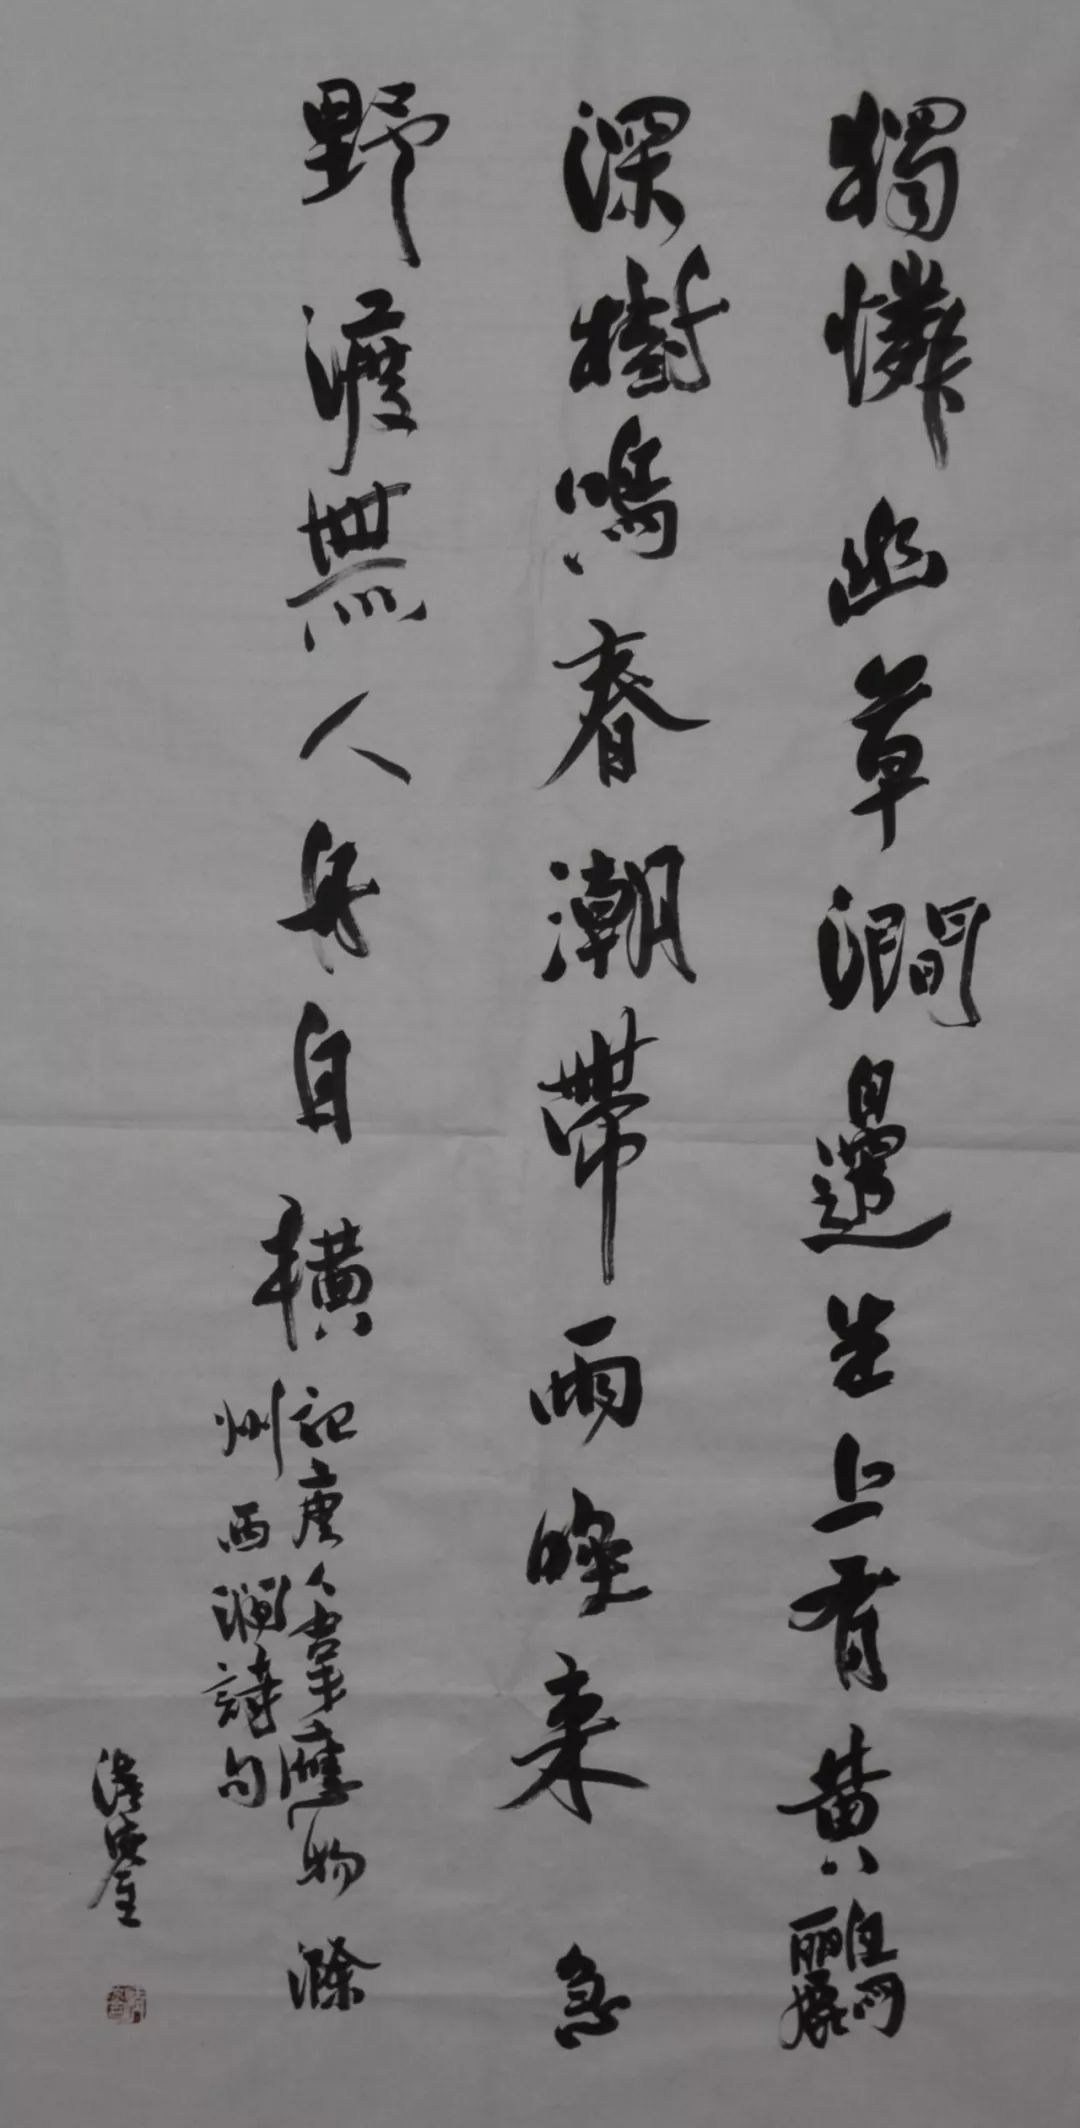 獨憐幽草澗邊生上有黄鸝
深樹鳴春潮帶雨晚来急
野渡無人舟自横
記唐人韋應物滁
州西澗詩句